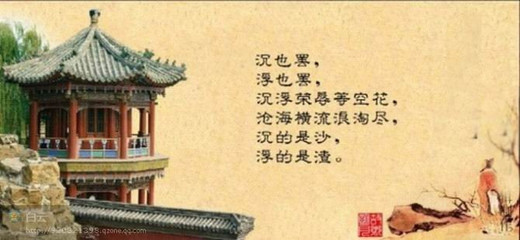 沉也罢，
浮也罢，
沉浮荣辱等空花，
沧海横流浪淘尽，
沉的是沙，
浮的是渣。
白云